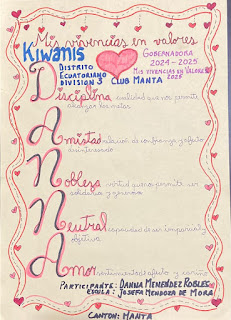 Mis vivencias en valores
Kiwanis
GOBERNADORA
2024 - 2025
DISTRITO
ECUATORIANO
DIVISION 3 CLUB MANTA
MIS VIVENCIAS EN VALORES
2025
Disciplina cualidad que nos permite
alcanzar las metas
Amistad relación de confianza y afecto
desinteresado
Nobleza virtud que nos permite ser
solidario y generoso
Neutral capacidad de ser imparcial y
objetivo
Amor sentimiento de afecto y cariño
PARTICIPANTE: DANNA MENENDEZ ROBLES
ESCUELA: JOSEFA MENDOZA DE MORA
CANTON: MANTA